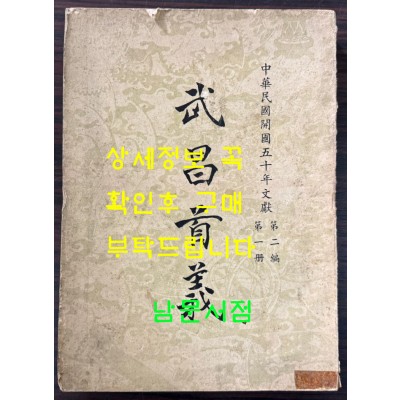 中華民國開國五十年文獻
第二編
第一册
武昌首義
상세정보 꼭
확인후 구매
부탁드립니다
남문서점